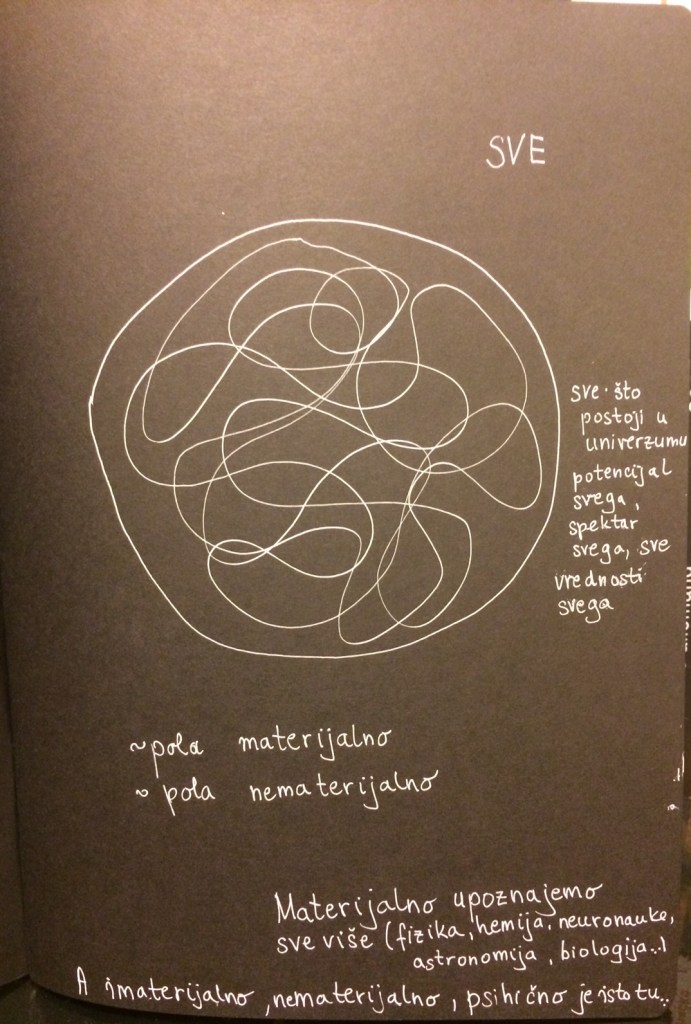 SVE
sve što
postoji u
univerzumu
potencijal
svega,
spektar
svega, sve
vrednosti
svega
~pola materijalno
~ pola nematerijalno
Materijalno upoznajemo
sve više (fizika, hemija, neuronauke,
astronomija, biologija..)
A imaterijalno, nematerijalno, psihično je isto tu..